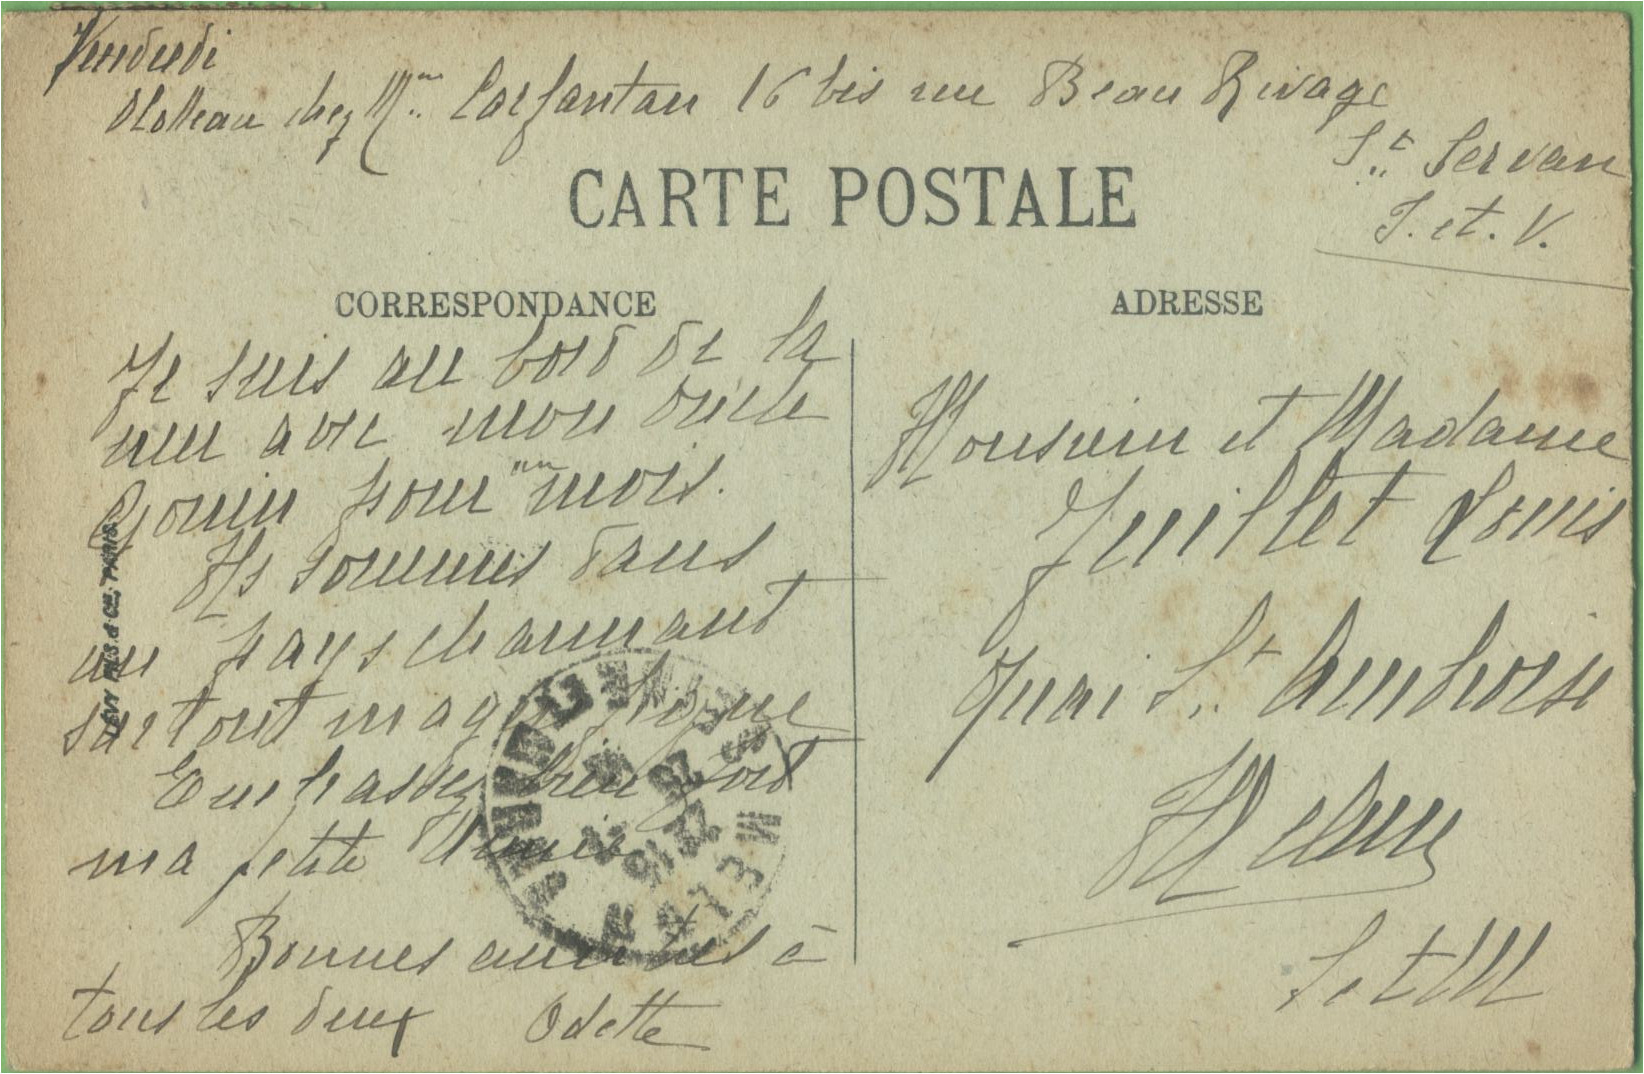 Vendredi
chez Mme Carfantan 16 bis rue Beau Rivage
St Servan
I. et. V.
CARTE POSTALE
CORRESPONDANCE
Je suis au bord de la
mer avec mon oncle
Gouin pour un mois.
Ns sommes dans
un pays charmant
surtout magnifique
Embrassez bien fort
ma petite
Bonnes amitiés à
tous les deux Odette
ADRESSE
Monsieur et Madame
Juillet Louis
Quai St Ambroise
Melun
S et M
LEVY FILS & Cie, PARIS
MELUN